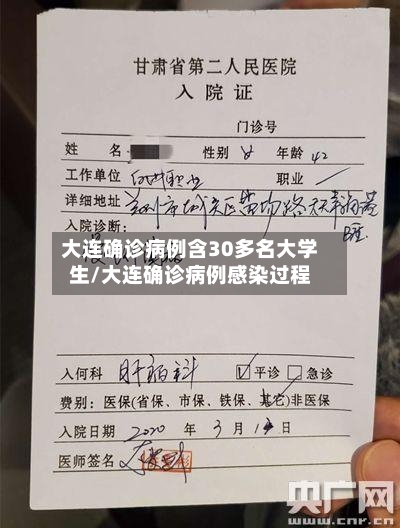 甘肃省第二人民医院
入院证
门诊号
姓名 性别 女 年龄 42
工作单位 职业
详细地址 兰州市城关区
入院诊断:
大连确诊病例含30多名大学
生/大连确诊病例感染过程
入何科 肝病科 ☑平诊 □急诊
费别:医保(省保、市保、铁保、其它)非医保
入院日期 2020 年 3 月 日
医师签名
央广网
www.cnr.cn